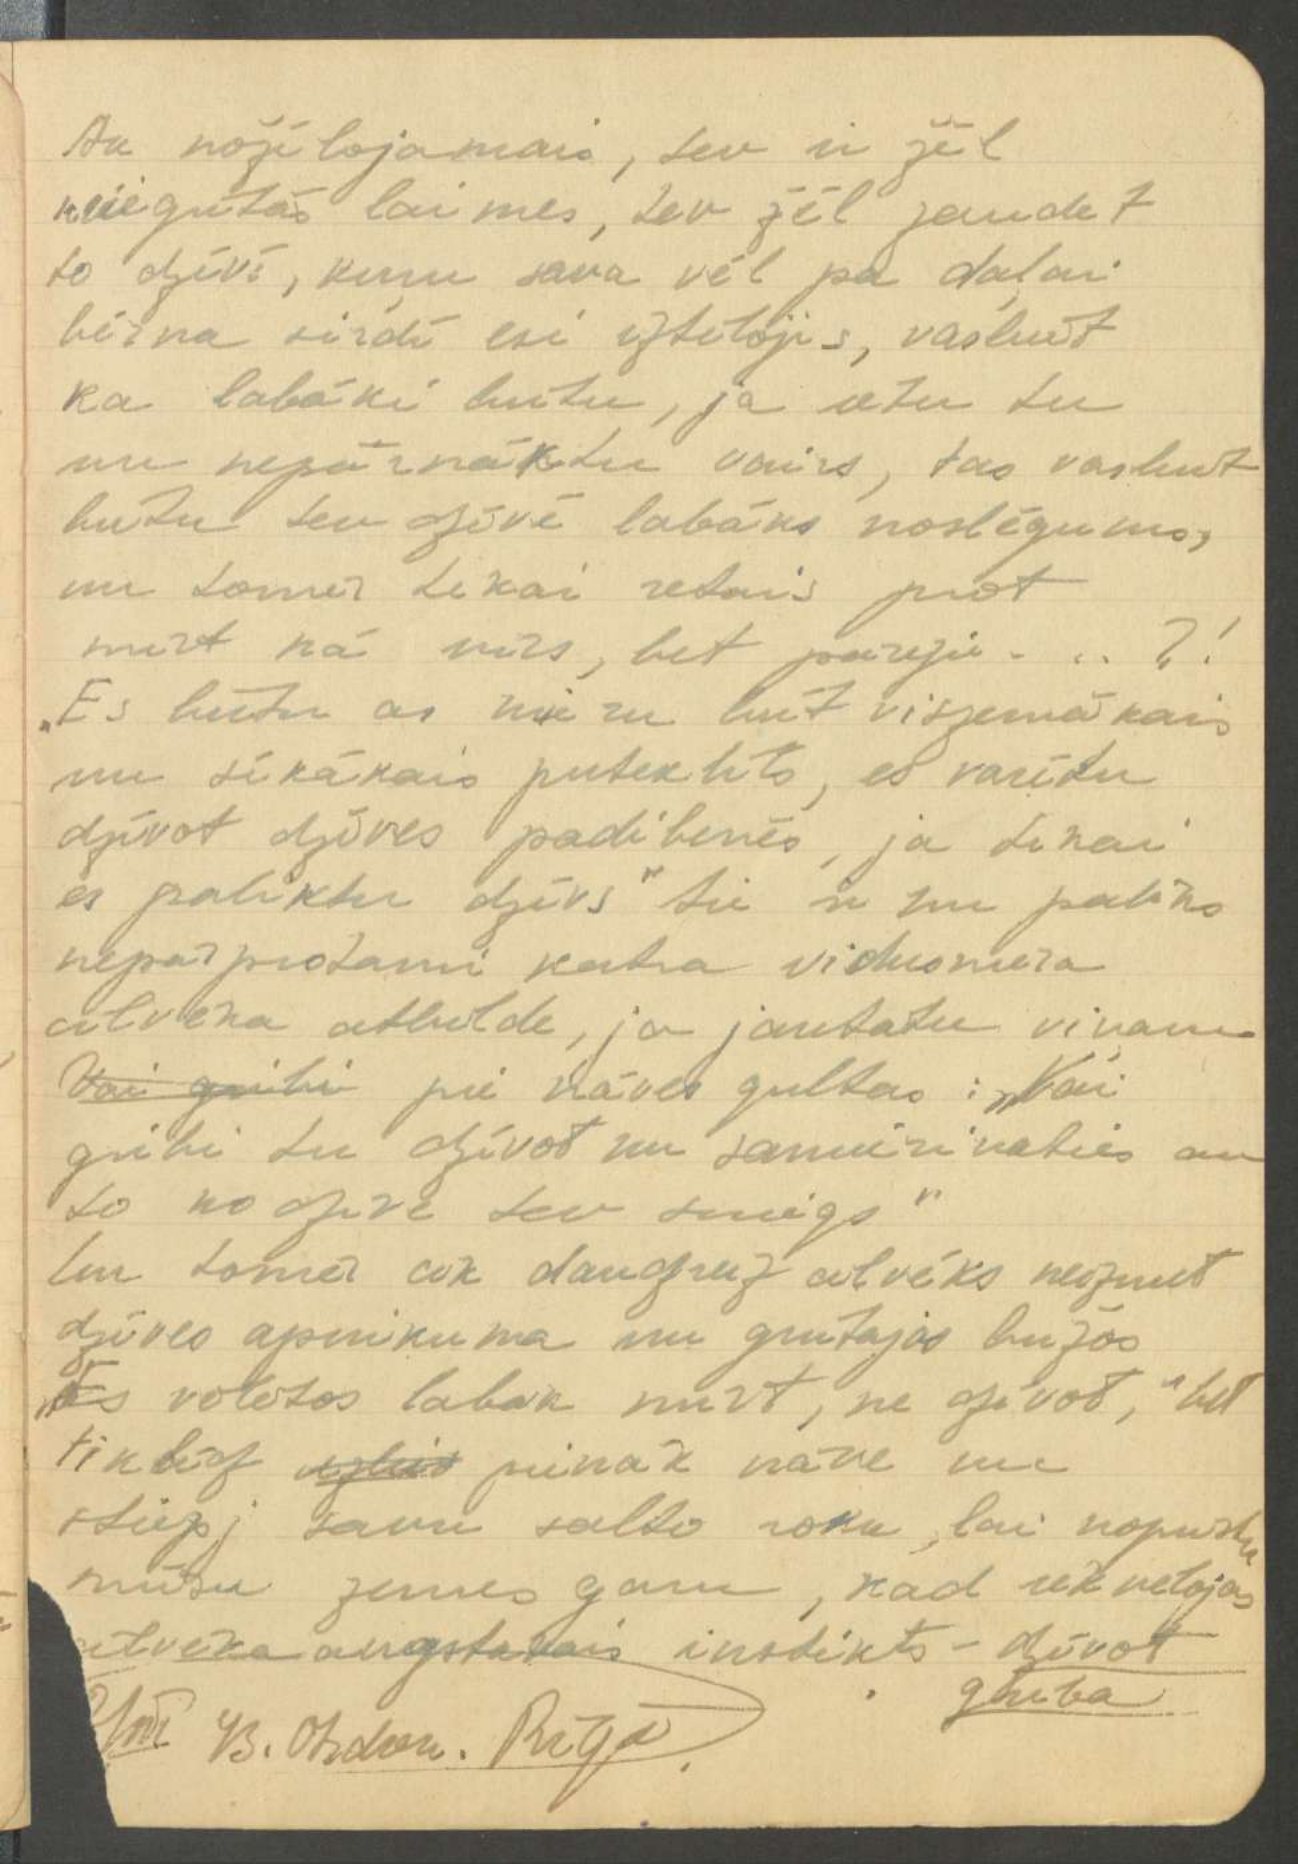 Ak nožēlojamais, tev ir žēl
neiegūtās laimes, tev žēl zaudēt
to dzīvi, kuru sava vēl pa daļai
bērna sirdī esi iztēlojis, varbūt
ka labāki būtu, ja rītu tu
un nepārnāktu vairs, tas varbūt
butu tev dzīvē labāks noslēgums,
un tomēr tikai retais prot
mirt kā vīrs, bet pārējie - .. ?!
„Es būtu ar mieru būt viszemākais
un sīkākais puteklīts, es varētu
dzīvot dzīves padibenēs, ja tikai
es paliktu dzīvs" tie ir un paliks
nepārprotami katra vidusmēra
cilvēka atbilde, ja jautatu viņam
Vai gribi pie nāves gultas: „Vai
gribi tu dzīvot un samierinaties ar
to ko dzīve tev sniegs"
Un tomēr cik daudzreiz cilvēks neizjūt
dzīves apnikuma un grūtajos brīžos
„Es vēlētos labāk mirt, ne dzīvot," bet
tiklīdz pienāk nāve un
stiepj savu salto roku, lai nopūstu
mūsu zemes garu, kad iekvēlojas
cilvēka augstakais instikts - dzīvot
griba
43. Rīgā